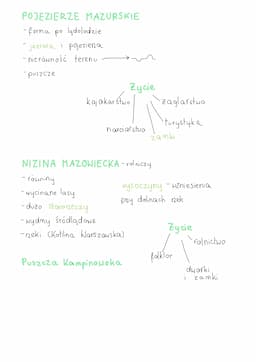 POJEZIERZE MAZURSKIE
- forma po lądolodzie
- jeziora i pojezierza
- nierówność terenu
- puszcze
Życie
kajakarstwo
żeglarstwo
narciarstwo
turystyka
zamki
NIZINA MAZOWIECKA - rolniczy
- równiny
- wycinane lasy
- dużo
- wydmy śródlądowe
- rzeki (Kotlina Warszawska)
wysoczyzny - wzniesienia
przy dolinach rzek
Puszcza Kampinowska
Życie
rolnictwo
folklor
dworki
i zamki